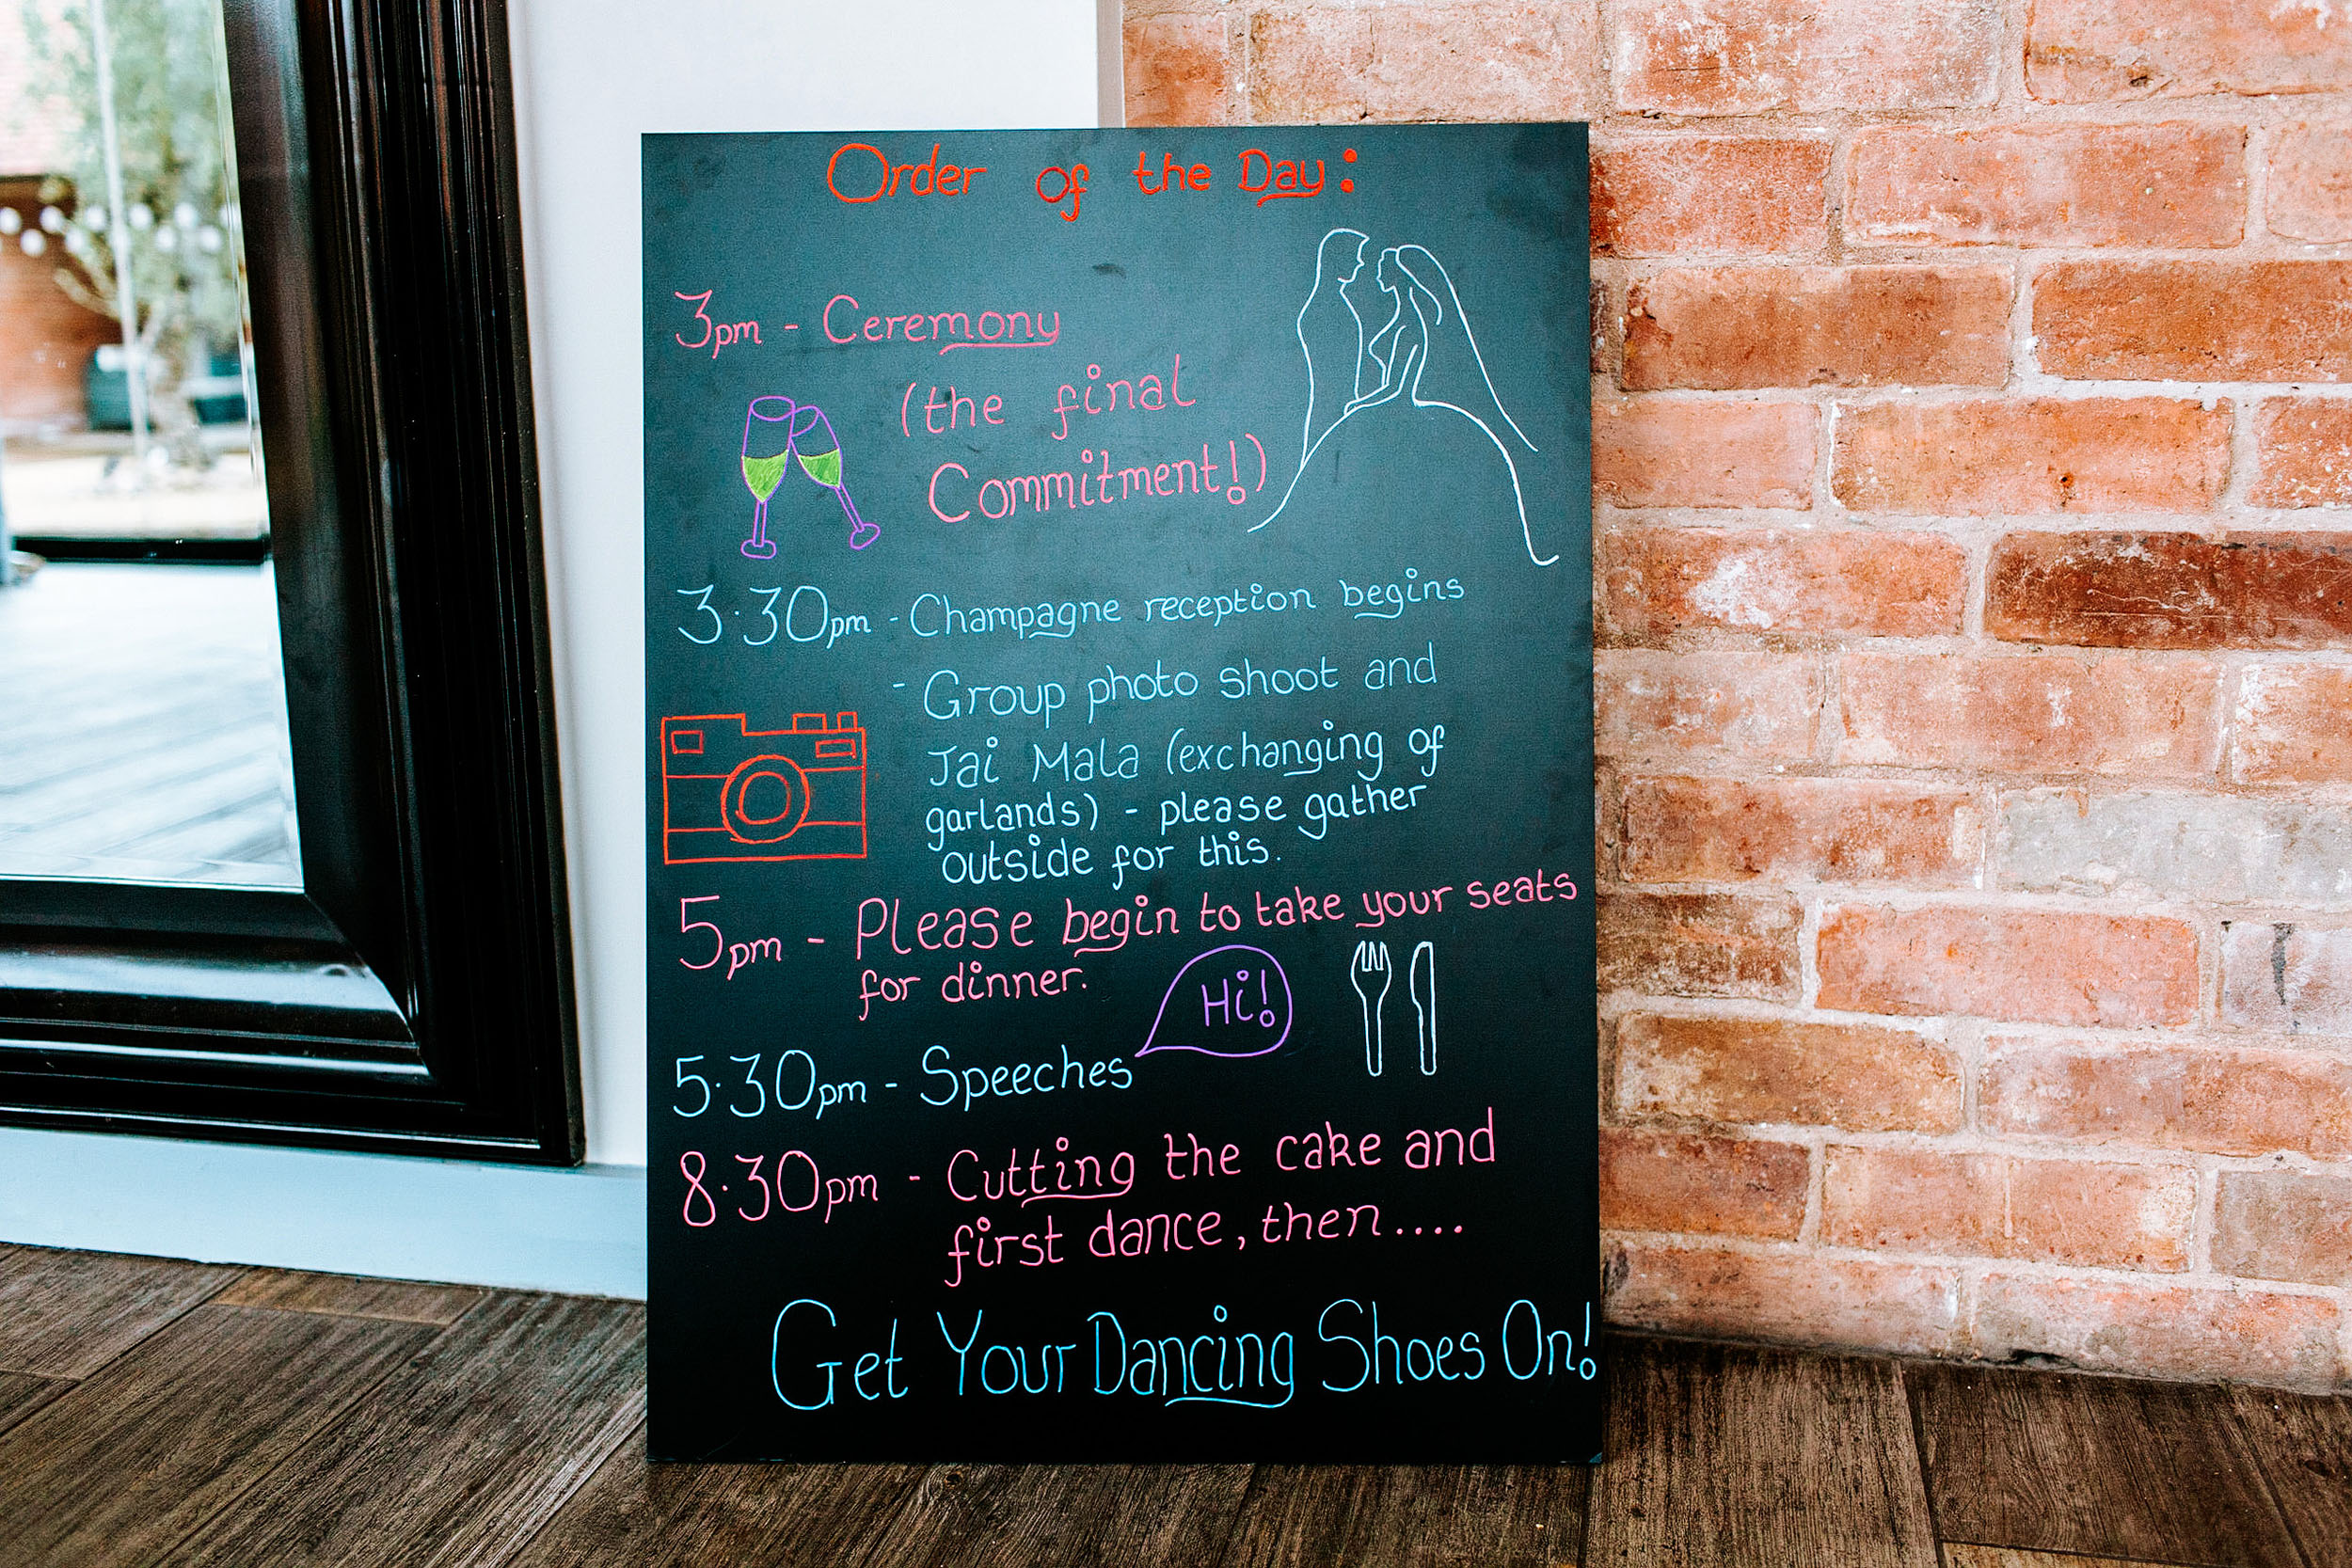 Order of the Day:
3pm - Ceremony
(the final
Commitment!)
3·30pm - Champagne reception begins
- Group photo shoot and
Jai Mala (exchanging of
garlands) - please gather
outside for this.
5pm - Please begin to take your seats
for dinner.
Hi!
5·30pm - Speeches
8·30pm - Cutting the cake and
first dance, then....
Get Your Dancing Shoes On!